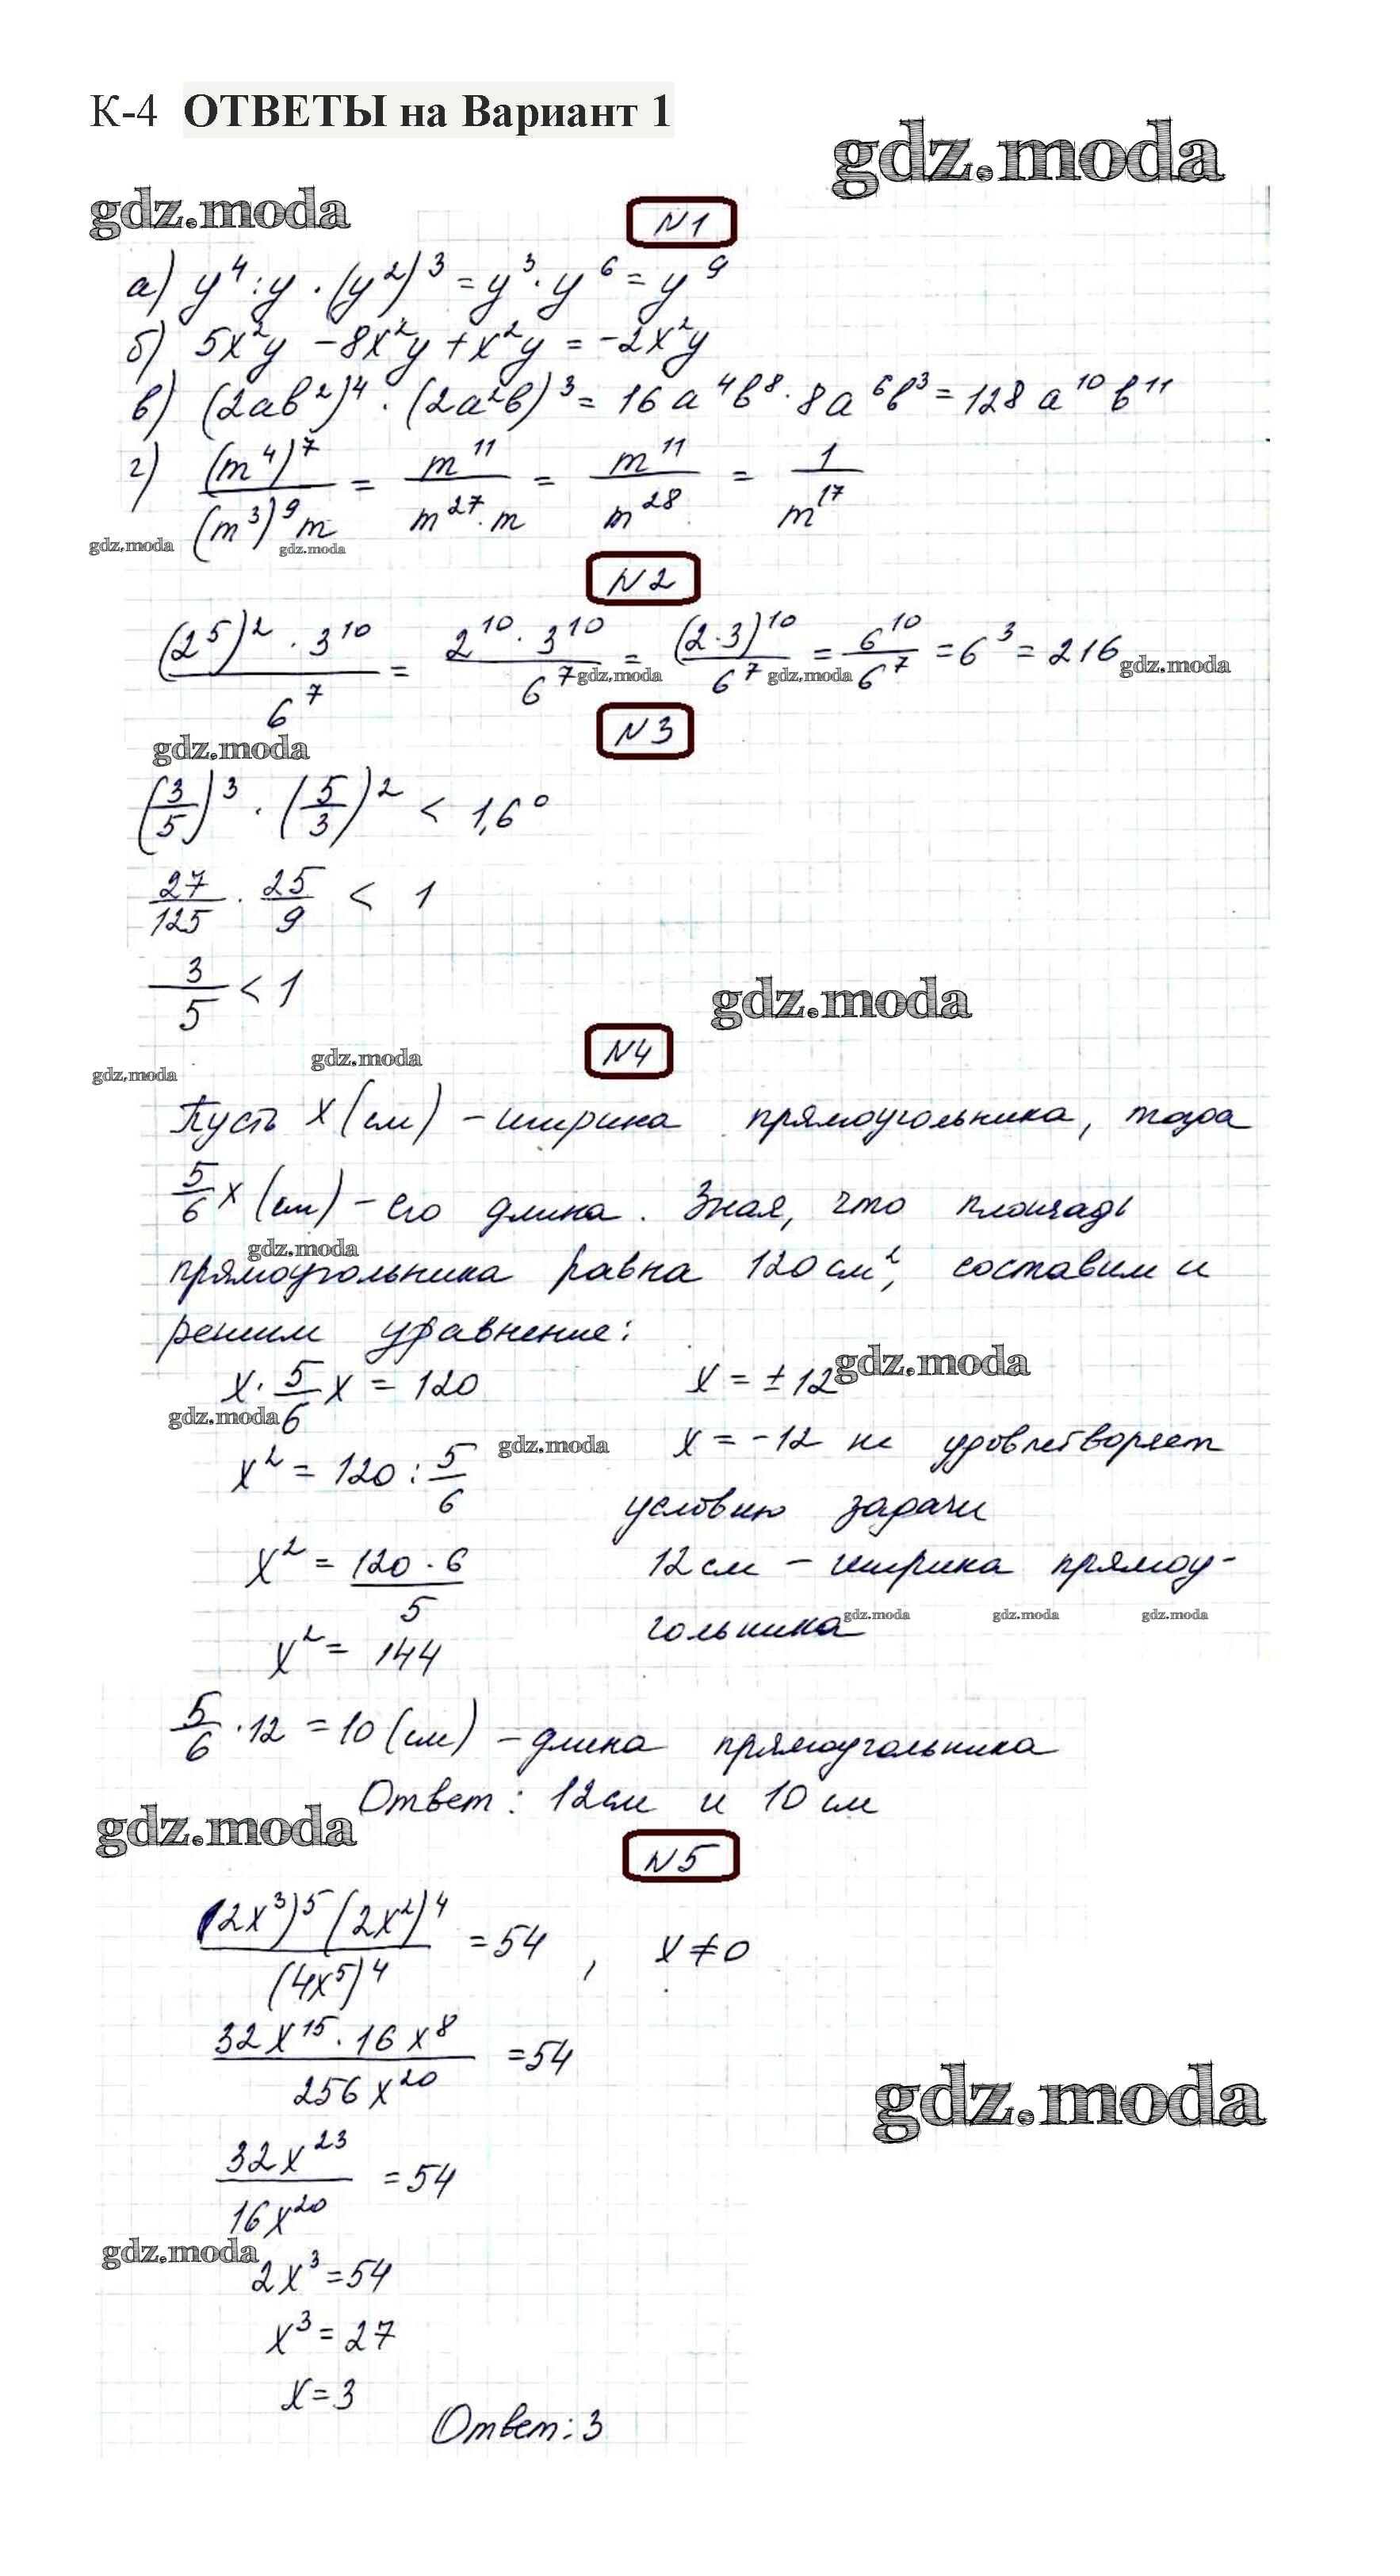 К-4 ОТВЕТЫ на Вариант 1
gdz.moda
gdz.moda
N1
а) y⁴ : y · (y²)³ = y³ · y⁶ = y⁹
б) 5x²y − 8x²y + x²y = −2x²y
в) (2ab²)⁴ · (2a²b)³ = 16a⁴b⁸ · 8a⁶b³ = 128a¹⁰b¹¹
г) (m⁴)⁷ / (m³)⁹m = m¹¹ / m²⁷·m = m¹¹ / m²⁸ = 1 / m¹⁷
gdz.moda gdz.moda
N2
(2⁵)² · 3¹⁰ / 6⁷ = 2¹⁰ · 3¹⁰ / 6⁷ = (2·3)¹⁰ / 6⁷ = 6¹⁰ / 6⁷ = 6³ = 216
gdz.moda gdz.moda gdz.moda
N3
gdz.moda
(3/5)³ · (5/3)² < 1,6⁰
27/125 · 25/9 < 1
3/5 < 1
gdz.moda
N4
gdz.moda gdz.moda
Пусть x (см) – ширина прямоугольника, тогда
5/6 x (см) – его длина. Зная, что площадь
gdz.moda
прямоугольника равна 120 см², составим и
решим уравнение:
x · 5/6 x = 120
gdz.moda
x² = 120 : 5/6
gdz.moda
x² = 120 · 6 / 5
x² = 144
x = ± 12
gdz.moda
x = −12 не удовлетворяет
условию задачи
12 см – ширина прямоу-
гольника
gdz.moda gdz.moda gdz.moda
5/6 · 12 = 10 (см) – длина прямоугольника
Ответ: 12 см и 10 см
gdz.moda
N5
(2x³)⁵ (2x²)⁴ / (4x⁵)⁴ = 54 , x ≠ 0
32x¹⁵ · 16x⁸ / 256x²⁰ = 54
gdz.moda
32x²³ / 16x²⁰ = 54
gdz.moda
2x³ = 54
x³ = 27
x = 3
Ответ: 3